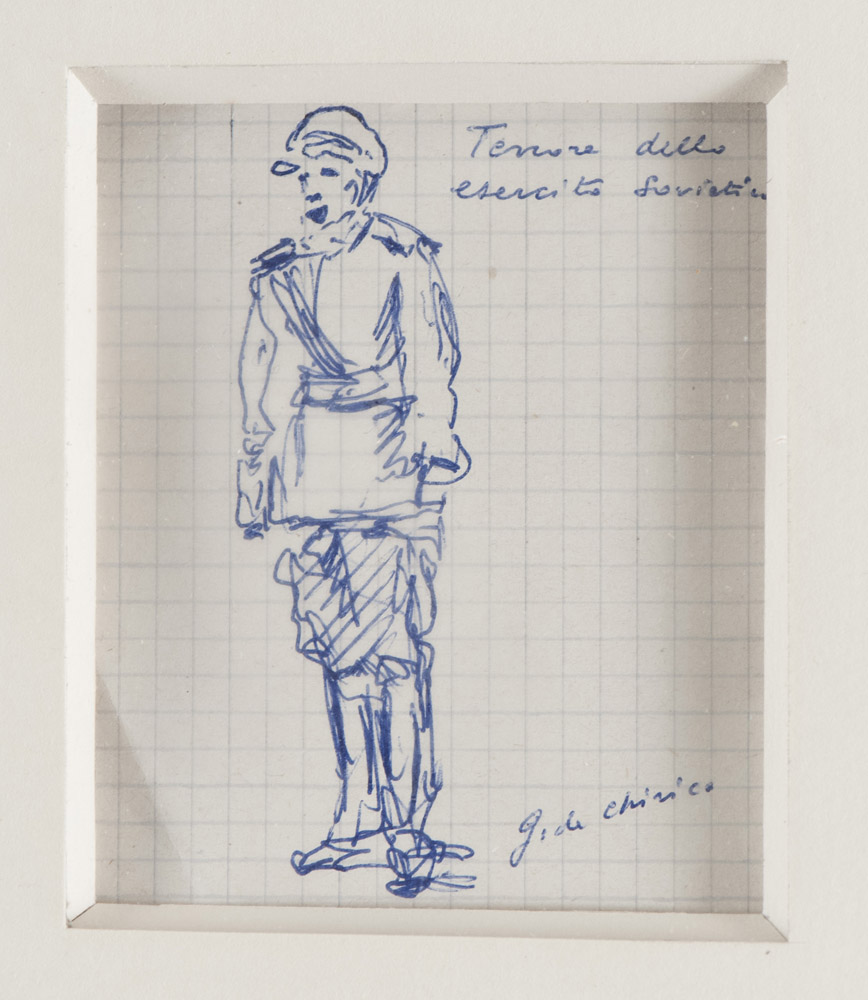 Tenore dello
esercito Sovietico
G. de Chirico